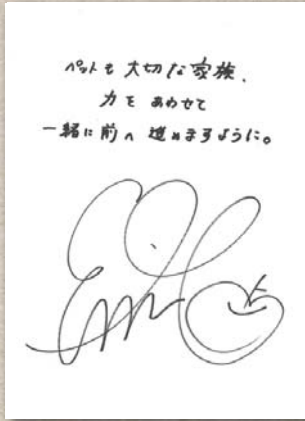 ペットも 大切な 家族、
力を あわせて
一緒に 前へ 進めますように。